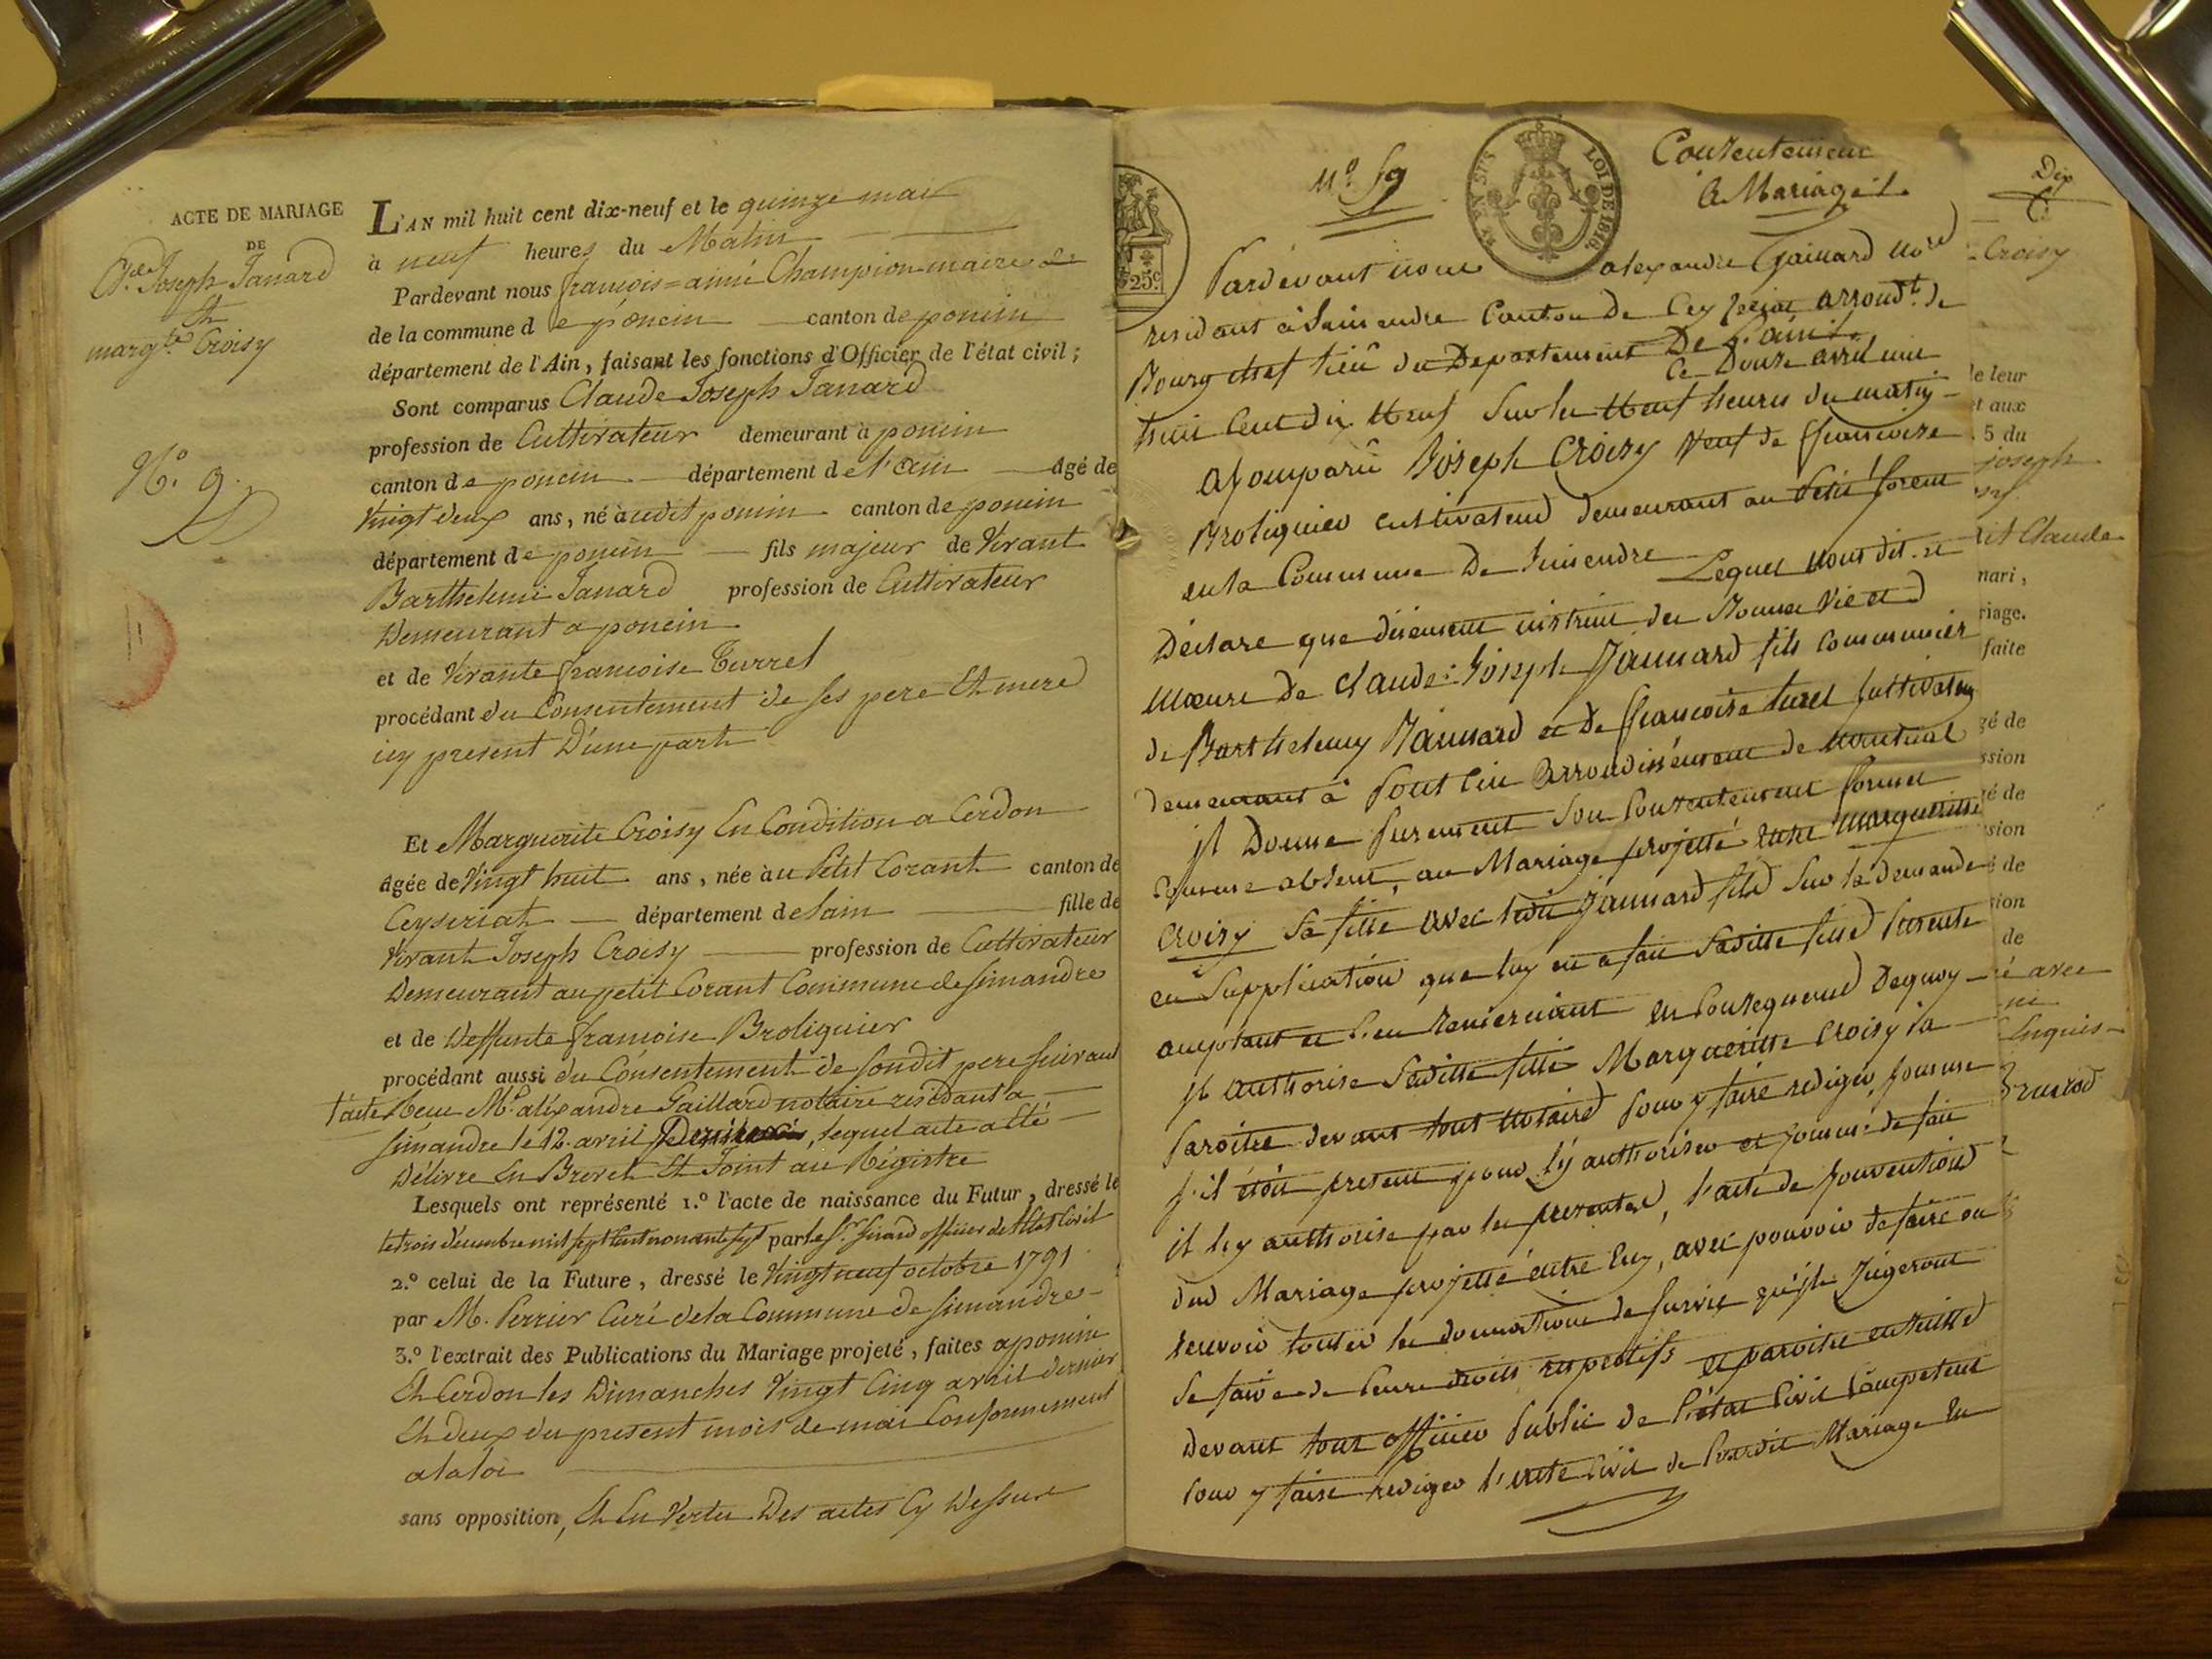 ACTE DE MARIAGE
DE
Cl.de Joseph Janard
Et
marg.te Croisy
N.o 9.
L'AN mil huit cent dix-neuf et le quinze mai
à neuf heures du Matin
Pardevant nous françois=aimé Champion maire de
de la commune de poncin canton de poncin
département de l'Ain, faisant les fonctions d'Officier de l'état civil;
Sont comparus Claude Joseph Janard
profession de Cultivateur demeurant à poncin
canton de poncin département de l'ain âgé de
Vingt deux ans, né audit poncin canton de poncin
département de poncin fils majeur de Vivant
Barthelemi Janard profession de Cultivateur
Demeurant a poncin
et de Vivante françoise Turrel
procédant du Consentement de ses pere Et mere
icy present D'une part
Et Marguerite Croisy En Condition a Cerdon
âgée de Vingt huit ans, née au Petit Corant canton de
Ceyseriat département de lain fille de
Vivant Joseph Croisy profession de Cultivateur
Demeurant au petit Corant Commune de simandre
et de Deffunte françoise Broliquier
procédant aussi du Consentement de sondit pere suivant
l'acte Recu M.e aléxandre Gaillard notaire residant a
simandre le 12. avril lequel acte a Eté
Délivré En Brevet Et Joint au Régistre
Lesquels ont représenté 1.º l'acte de naissance du Futur, dressé le
le trois décembre mil sept Cent nonante sept par le S.r Girard officier de l'Etat Civil
2.º celui de la Future, dressé le Vingt neuf octobre 1791
par M. Perrier Curé de la Commune de simandre
3.º l'extrait des Publications du Mariage projeté, faites a poncin
Et Cerdon les Dimanches Vingt Cinq avril dernier
Et deux du present mois de mai Conformement
a la loi
sans opposition, Et En Vertu Des actes Cy Dessus
N.º 59
25 c
LOI DE 1816.
Consentement
à Mariage
Pardevant nous alexandre Gaillard no.re
residant à Simandre Canton de Ceyzeriat arrond.t de
Bourg chef lieu du Departement De l'ain
Ce Douze avril mil
huit Cent dix Neuf Sur les Neuf heures du matin
a Comparu Joseph Croisy Veuf de françoise
Broliquier cultivateur demeurant au Petit Corent
en la Commune De Simandre Lequel Nous dit et
Déclare que duement instruit des Bonnes Vie et
Mœurs de Claude: Joseph Jannard fils
de Barthelemy Jannard et de françoise turel Cultivateur
demeurant à Poncin Arrondissement de Nantua
il Donne Purement Son Consentement formel
Comme absent, au Mariage projetté entre Margueritte
Croisy Sa fille avec ledit Jannard fils Sur la demande
et Supplication que luy en a fait Saditte fille Presente
acceptant et l'en Remerciant En Consequence Dequoy
il authorise Saditte fille Margueritte Croisy à
Paroitre devant tout Notaire Pour y faire rediger, Comme
s'il étoit present pour l'y authoriser et Comme de fait
il l'y authorise par les presentes, l'acte de Convention
du Mariage projetté entre Eux, avec pouvoir de faire ou
recevoir toutes les donnations de Survie qu'ils Jugeront
Se faire de leurs droits respectifs et paroitre ensuitte
devant tout officier Public de l'état Civil Competent
Pour y faire rediger l'acte Civil de Leurdit Mariage En
Dix
Croisy
de leur
et aux
5 du
joseph
dit Claude
mari,
riage.
faite
gé de
ssion
gé de
sion
é de
sion
de
é avec